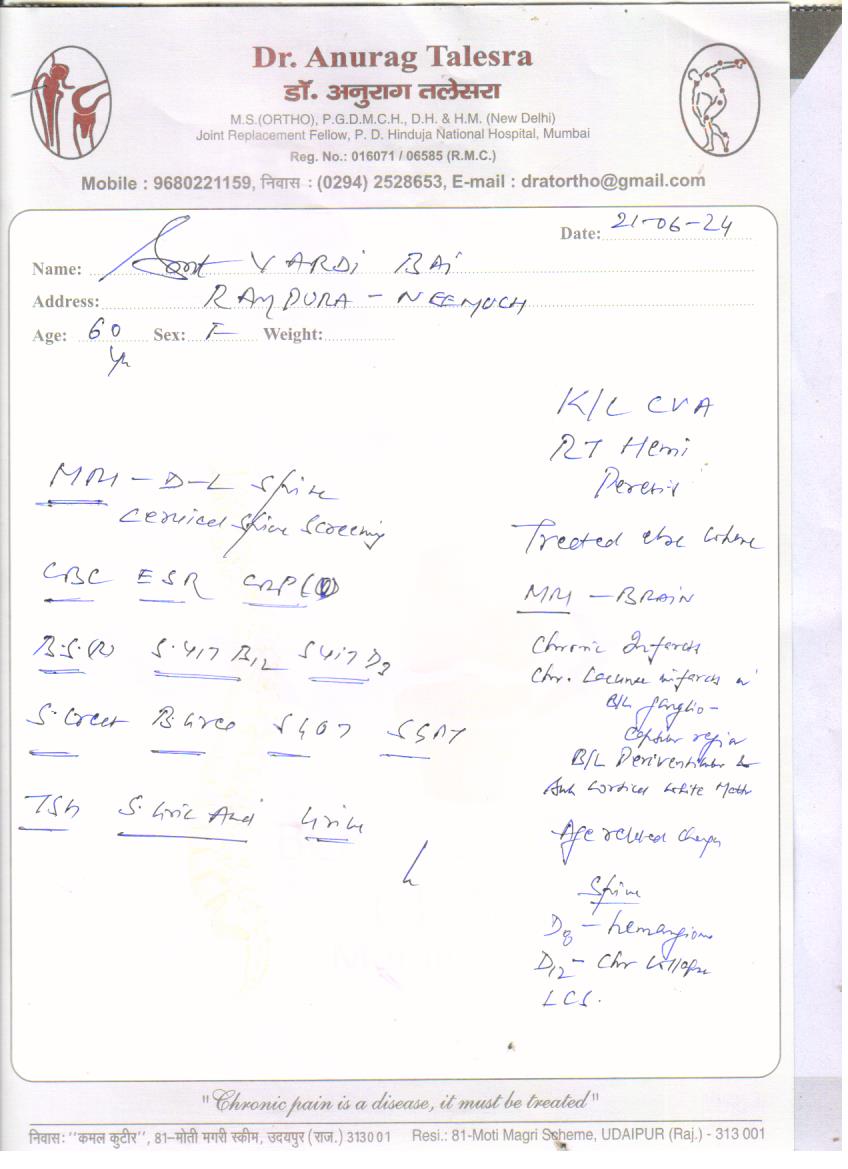 Dr. Anurag Talesra
डॉ. अनुराग तलेसरा
M.S.(ORTHO), P.G.D.M.C.H., D.H. & H.M. (New Delhi)
Joint Replacement Fellow, P. D. Hinduja National Hospital, Mumbai
Reg. No.: 016071 / 06585 (R.M.C.)
Mobile : 9680221159, निवास : (0294) 2528653, E-mail : dratortho@gmail.com
Date: 21-06-24
Name: Smt VARDI BAI
Address: RAMPURA - NEEMUCH
Age: 60 Yr Sex: F Weight:
MRI - D-L Spine
Cervical Spine Screening
CBC ESR CRP
B.S.(R) S. Vit B12 S Vit D3
S. Creat B. Urea SGOT SGPT
TSH S. Uric Acid Urine
K/C CVA
RT Hemi
Paresis
Treated else where
MRI - BRAIN
Chronic Infarcts
Chr. Lacunar infarcts in
B/L ganglio-
Capsular region
B/L Periventricular &
Sub Cortical White Matter
Age related changes
Spine
D8 - hemangioma
D12 - Chr Collapse
LCS.
"Chronic pain is a disease, it must be treated"
निवास: "कमल कुटीर", 81-मोती मगरी स्कीम, उदयपुर (राज.) 313001 Resi.: 81-Moti Magri Scheme, UDAIPUR (Raj.) - 313 001